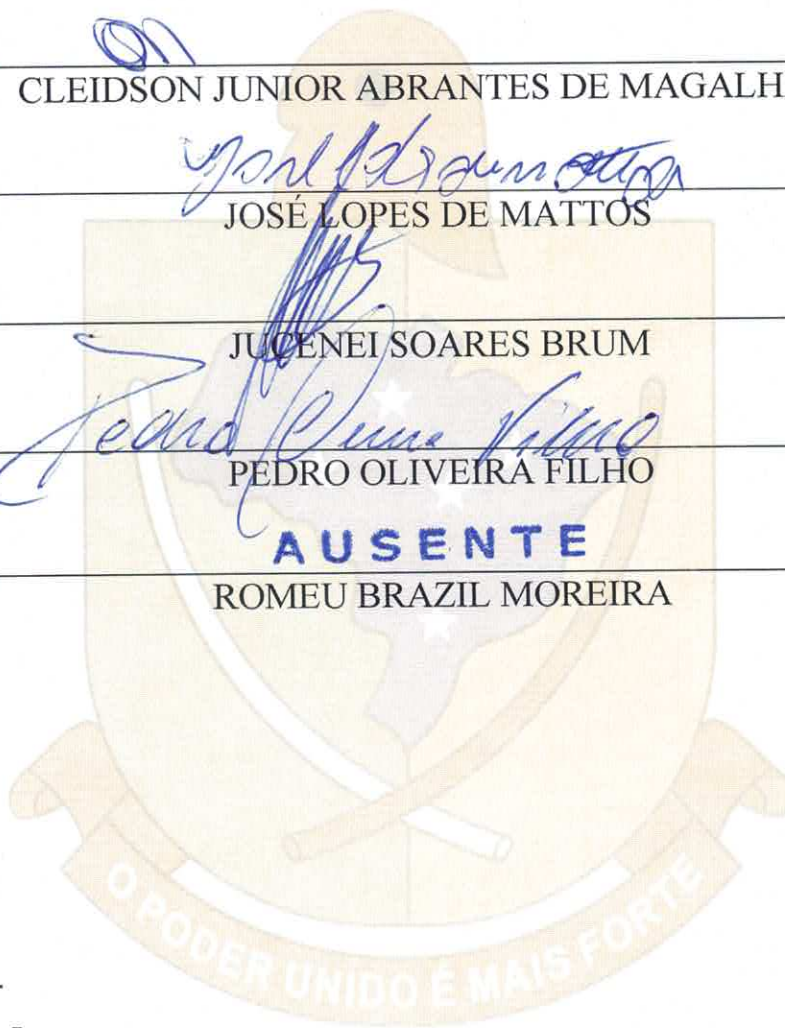 CLEIDSON JUNIOR ABRANTES DE MAGALH
JOSÉ LOPES DE MATTOS
JUCENEI SOARES BRUM
Pedro Filho
PEDRO OLIVEIRA FILHO
AUSENTE
ROMEU BRAZIL MOREIRA
O PODER UNIDO É MAIS FORTE